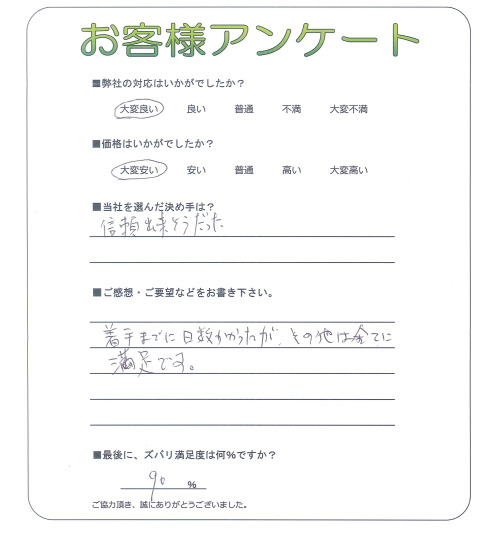 お客様アンケート
■弊社の対応はいかがでしたか？
大変良い 良い 普通 不満 大変不満
■価格はいかがでしたか？
大変安い 安い 普通 高い 大変高い
■当社を選んだ決め手は？
信頼出来そうだった
■ご感想・ご要望などをお書き下さい。
着手までに日数かかったが、その他は全てに
満足です。
■最後に、ズバリ満足度は何%ですか？
90 %
ご協力頂き、誠にありがとうございました。